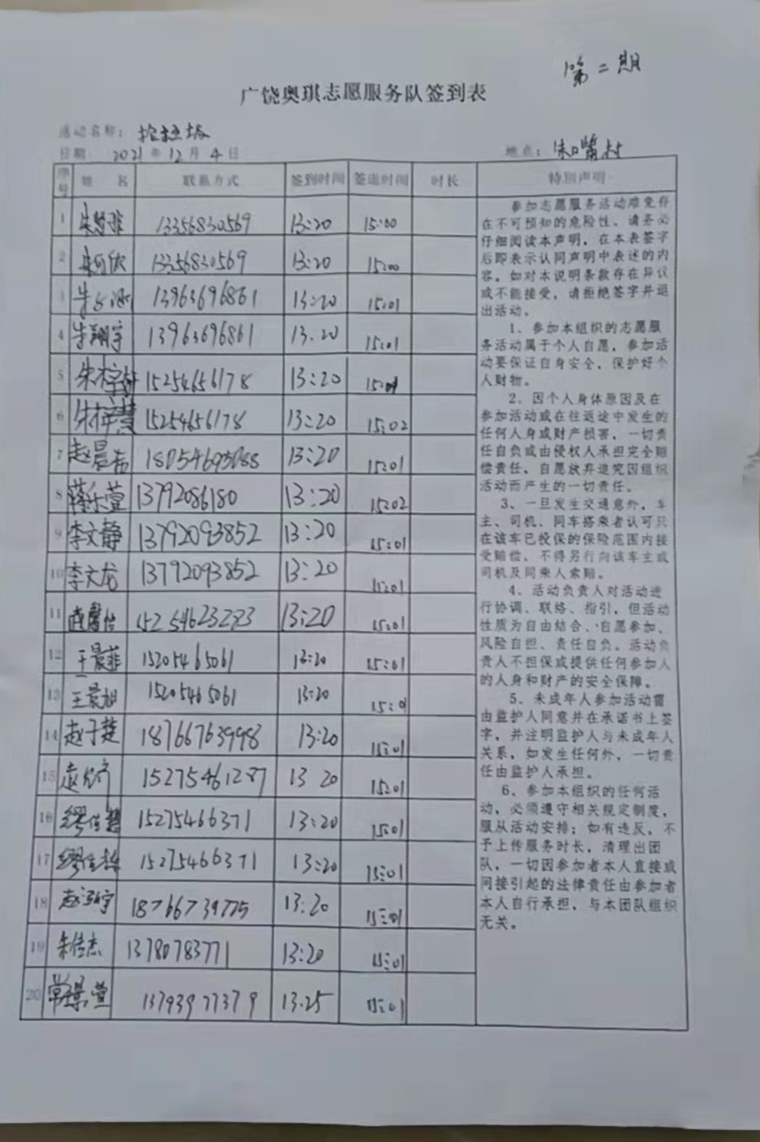 第二期
广饶奥琪志愿服务队签到表
活动名称：
日期 2021年12月4日 地点：朱嘴村
序号 姓 名 联系方式 签到时间 签退时间 时长 特别声明
1 13356830569 13:20 15:00
2 13356830569 13:20 15:00
3 13963696861 13:20 15:01
4 朱翔宇 13963696861 13:20 15:01
5 15254656178 13:20 15:01
6 15254656178 13:20 15:02
7 赵晨希 13:20 15:01
8 蒋乐萱 13792086180 13:20 15:02
9 李文静 13792093852 13:20 15:01
10 李文龙 13792093852 13:20 15:01
11 13:20 15:01
12 王景菲 15205465061 13:20 15:01
13 王景旭 15205465061 13:20 15:01
14 赵子楚 18766763998 13:20 15:01
15 15275461287 13 20 15:01
16 15275466371 13:20 15:01
17 15275466371 13:20 15:01
18 18766739775 13:20 15:01
19 朱佳杰 13780783771 13:20 15:01
20 13793977379 13:25 15:01
参加志愿服务活动难免存
在不可预知的危险性，请务必
仔细阅读本声明，在本表签字
后即表示认同声明中表述的内
容。如对本说明条款存在异议
或不能接受，请拒绝签字并退
出活动。
1、参加本组织的志愿服
务活动属于个人自愿，参加活
动要保证自身安全，保护好个
人财物。
2、因个人身体原因及在
参加活动或在往返途中发生的
任何人身或财产损害，一切责
任自负或由侵权人承担完全赔
偿责任，自愿放弃追究因组织
活动而产生的一切责任。
3、一旦发生交通意外，车
主、司机、同车搭乘者认可只
在该车已投保的保险范围内接
受赔偿，不得另行向该车主或
司机及同乘人索赔。
4、活动负责人对活动进
行协调、联络、指引，但活动
性质为自由结合、自愿参加、
风险自担、责任自负。活动负
责人不担保或提供任何参加人
的人身和财产的安全保障。
5、未成年人参加活动需
由监护人同意并在承诺书上签
字，并注明监护人与未成年人
关系，如发生任何外，一切责
任由监护人承担。
6、参加本组织的任何活
动，必须遵守相关规定制度，
服从活动安排；如有违反，不
予上传服务时长，清理出团
队，一切因参加者本人直接或
间接引起的法律责任由参加者
本人自行承担，与本团队组织
无关。